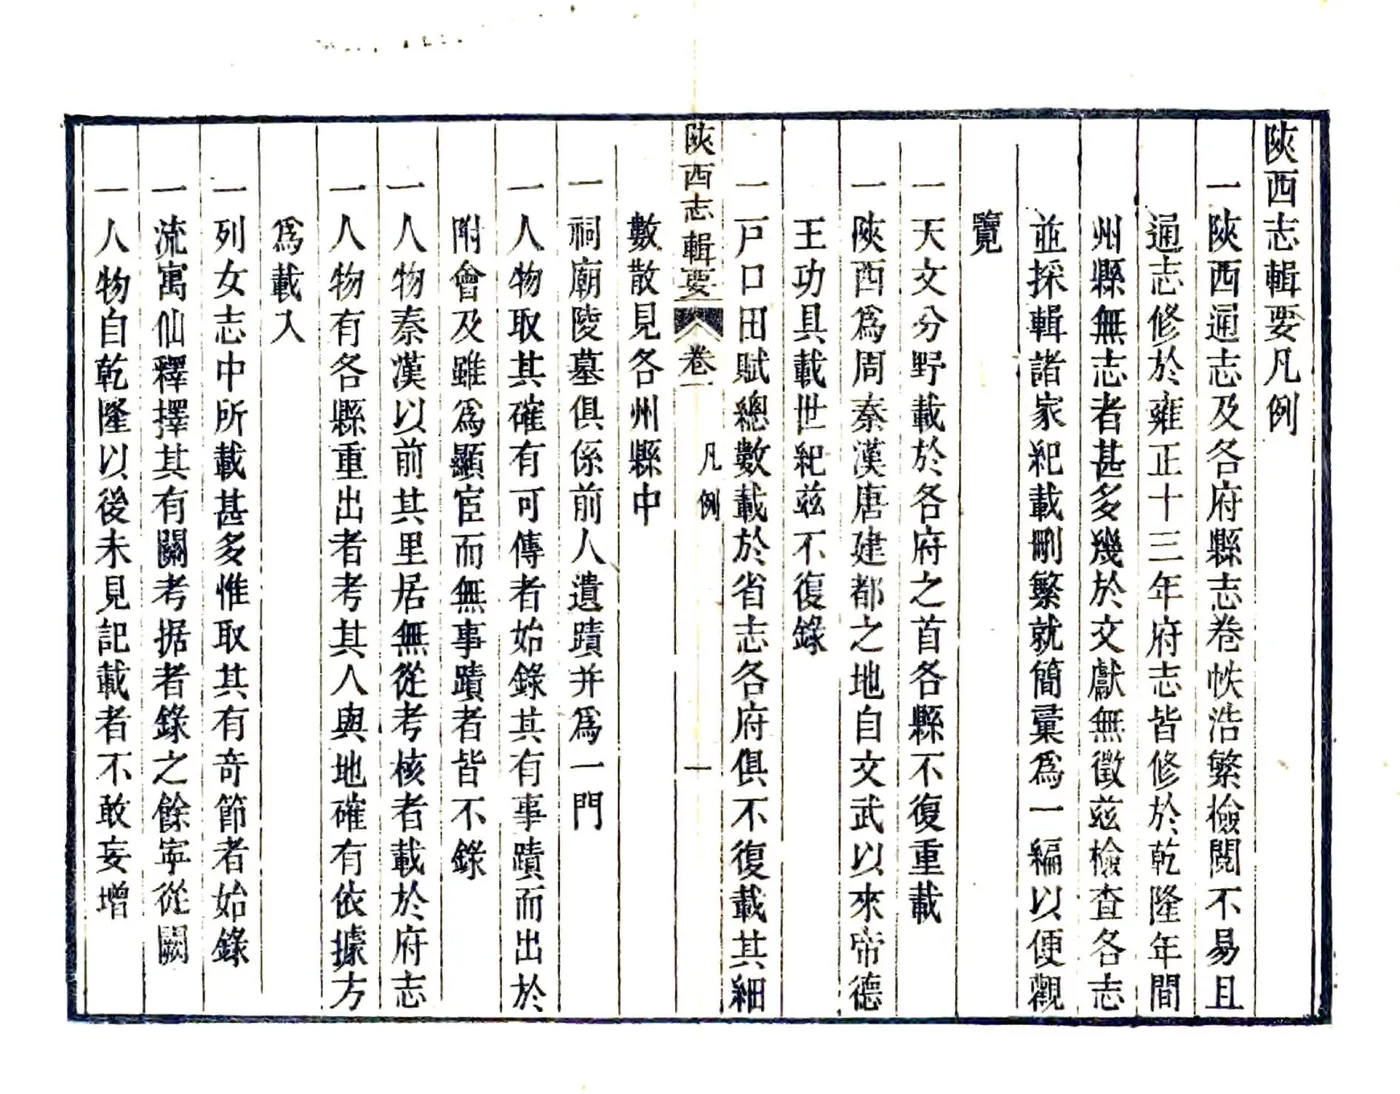 陝西志輯要凡例
一陝西通志及各府縣志卷帙浩繁檢閱不易且
通志修於雍正十三年府志皆修於乾隆年間
州縣無志者甚多幾於文獻無徵玆檢查各志
並採輯諸家紀載刪繁就簡彙爲一編以便觀
覽
一天文分野載於各府之首各縣不復重載
一陝西爲周秦漢唐建都之地自文武以來帝德
王功具載世紀玆不復錄
一戸口田賦總數載於省志各府俱不復載其細
陝西志輯要 卷一 凡例 一
數散見各州縣中
一祠廟陵墓俱係前人遺蹟并爲一門
一人物取其確有可傳者始錄其有事蹟而出於
附會及雖爲顯宦而無事蹟者皆不錄
一人物秦漢以前其里居無從考核者載於府志
一人物有各縣重出者考其人與地確有依據方
爲載入
一列女志中所載甚多惟取其有奇節者始錄
一流寓仙釋擇其有關考据者錄之餘寧從闕
一人物自乾隆以後未見記載者不敢妄增